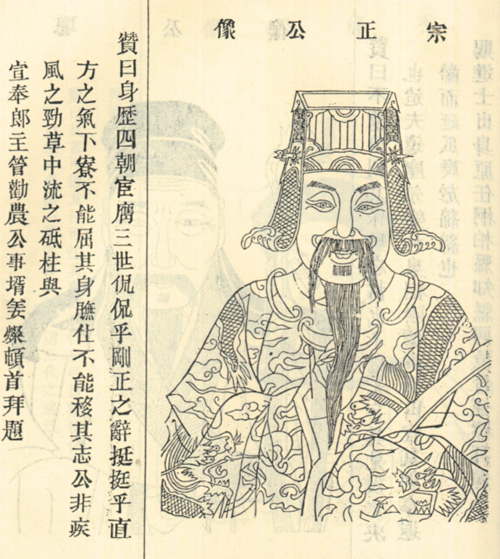 宗正公像
贊曰身歷四朝官膺三世侃侃乎剛正之辭挺挺乎直
方之氣下寮不能屈其身膴仕不能移其志公非疾
風之勁草中流之砥柱與
宣奉郎主管勸農公事壻姜燦頓首拜題